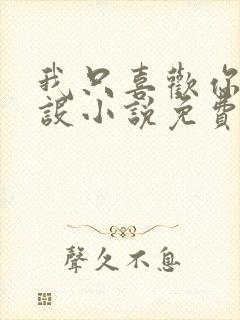 我只喜歡你
設小說免費
聲久不息